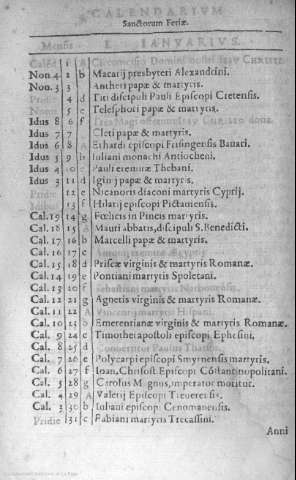 CALENDARIVM
Sanctorum Feriæ.
Mensis I. IANVARIVS.
Cal. 1 A Circumcisio Domini nostri IESV CHRISTI
Non 4 2 b Macarij presbyteri Alexandrini.
Non. 3 3 Antheri papæ & martyris.
Pridie 4 d Titi discipuli Pauli Episcopi Cretensis.
5 e Telesphori papæ & martyris.
Idus 8 6 f
Idus 7 7 Cleti papæ & martyris.
Idus 6 8 A Erhardi episcopi Frisingensis Bauari.
Idus 5 9 b Iuliani monachi Antiocheni.
Idus 4 10 c Pauli eremitæ Thebani.
Idus 3 11 d Iginij papæ & martyris.
12 e Nicanoris diaconi martyris Cyprij.
13 f Hilarij episcopi Pictamensis.
Cal. 19 14 g Fœlicis in Pincis martyris.
Cal. 18 15 A Mauri abbatis, discipuli S. Benedicti.
Cal. 17 16 b Marcelli papæ & martyris.
Cal. 16 17 c
Cal. 15 18 d Priscæ virginis & martyris Romanæ.
Cal. 14 19 e Pontiani martyris Spoletani.
Cal. 13 20 f
Cal. 12 21 g Agnetis virginis & martyris Romanæ.
Cal. 11 22 A
Cal. 10 23 b Emerentianæ virginis & martyris Romanæ.
Cal. 9 24 c Timothei apostoli episcopi Ephesini.
Cal. 8 25 d
Cal. 7 26 e Polycarpi episcopi Smyrnensis martyris.
Cal. 6 27 f Ioan. Chrisost Episcopi Cōstantinopolitani.
Cal. 5 28 g Carolus Magnus, imperator moritur.
Cal. 4 29 A Valerij Episcopi Treuerensis.
Cal. 3 30 b Iuliani episcopi Cenomanensis.
Pridie 31 c Fabiani martyris Trecassini.
Anni